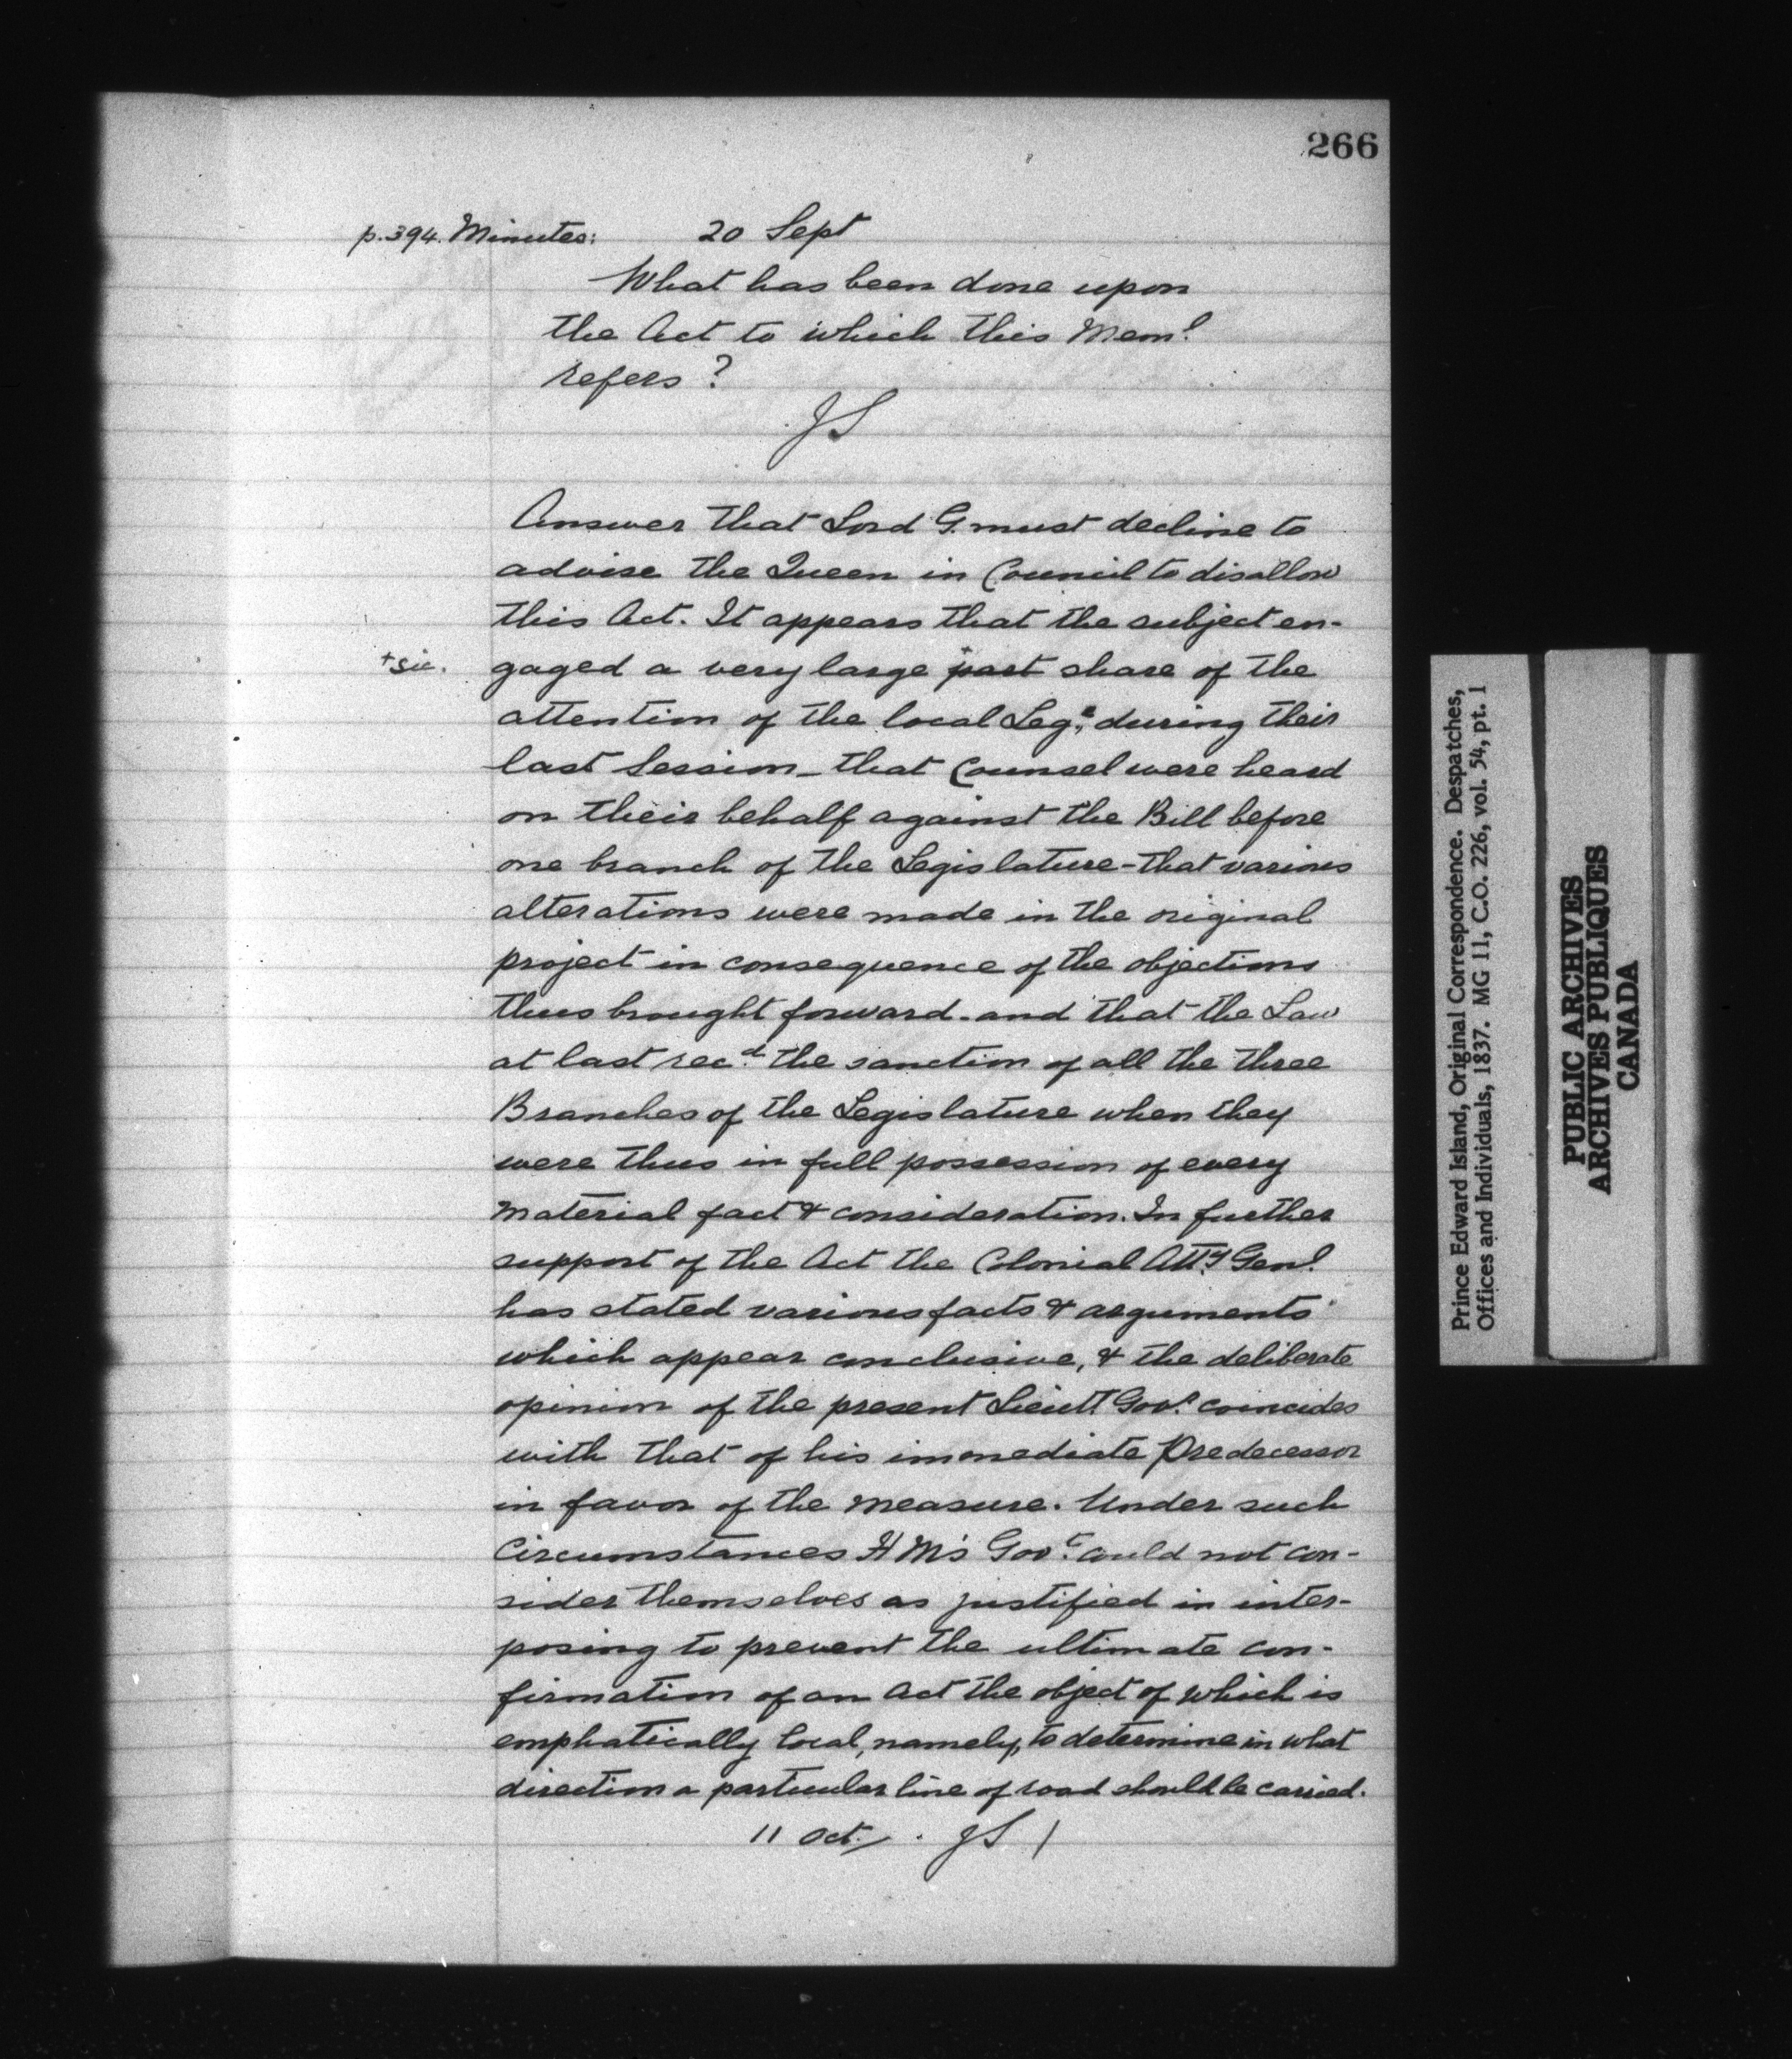 266
p.394. Minutes: 20 Sept
What has been done upon
the Act to which this Meml.
refers?
JS
Answer that Lord G. must decline to
advise the Queen in Council to disallow
this Act. It appears that the subject en-
+sic. gaged a very large part share of the
attention of the local Lege, during their
last Session_ that Counsel were heard
on their behalf against the Bill before
one branch of the Legislature - that various
alterations were made in the original
project in consequence of the objections
thus brought forward - and that the Law
at last recd. the sanction of all the three
Branches of the Legislature when they
were thus in full possession of every
material fact & consideration. In further
support of the Act the Colonial Atty. Genl.
has stated various facts & arguments
which appear conclusive, & the deliberate
opinion of the present Lieutt. Govr. coincides
with that of his immediate Predecessor
in favor of the measure. Under such
Circumstances H M's Govt. could not con-
sider themselves as justified in inter-
posing to prevent the ultimate con-
firmation of an Act the object of which is
emphatically local, namely, to determine in what
direction a particular line of road should be carried.
11 Oct./ . JS /
Prince Edward Island, Original Correspondence. Despatches,
Offices and Individuals, 1837. MG 11, C.O. 226, vol. 54, pt. 1
PUBLIC ARCHIVES
ARCHIVES PUBLIQUES
CANADA